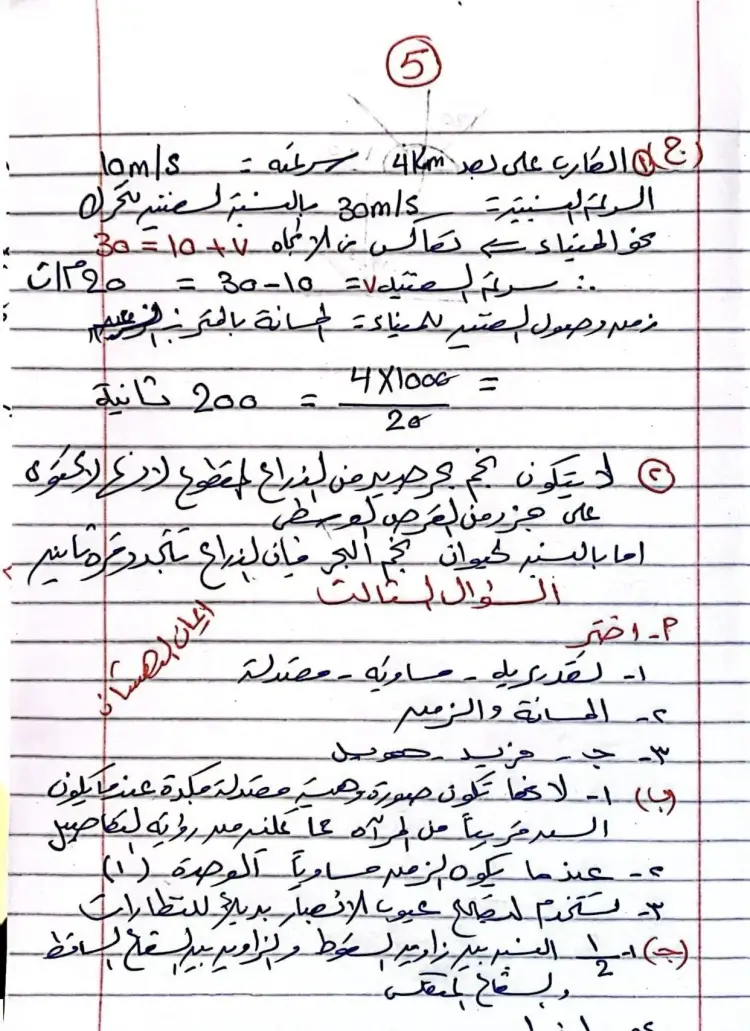 5
(ج) ① القارب على بعد 4Km سرعته = 10m/s
السرعة النسبية = 30m/s بالنسبة لسفينة تتحرك
نحو الميناء ⇐ تعاكس في الاتجاه 30 = 10 + v
∴ سرعة السفينة v = 30 - 10 = 20 م/ث
زمن وصول السفينة للميناء = المسافة بالمتر ÷
= 4X1000 / 20 = 200 ثانية
② لا يتكون نجم بحر جديد من الذراع المقطوع لانها لاتحتوى
على جزء من القرص الوسطى
اما بالنسبة لحيوان نجم البحر فإن الذراع تتجدد مرة ثانية
السؤال الثالث
ايمان
م- اختر
١- تقديرية - مساوية - معتدلة
٢- المسافة والزمن
٣- ج - فريد هويل
(ب) ١- لانها تكون صورة وهمية معتدلة مكبرة عندما يكون
السن قريباً من المرآه مما يمكنه من رؤية التفاصيل
٢- عندما يكون الزمن مساوياً الوحدة (١)
٣- تستخدم لتصحيح عيوب الابصار بديلاً للنظارات
(جـ) ١- 1/2 النسبة بين زاوية السقوط والزاوية بين الشعاع الساقط
والشعاع المنعكس